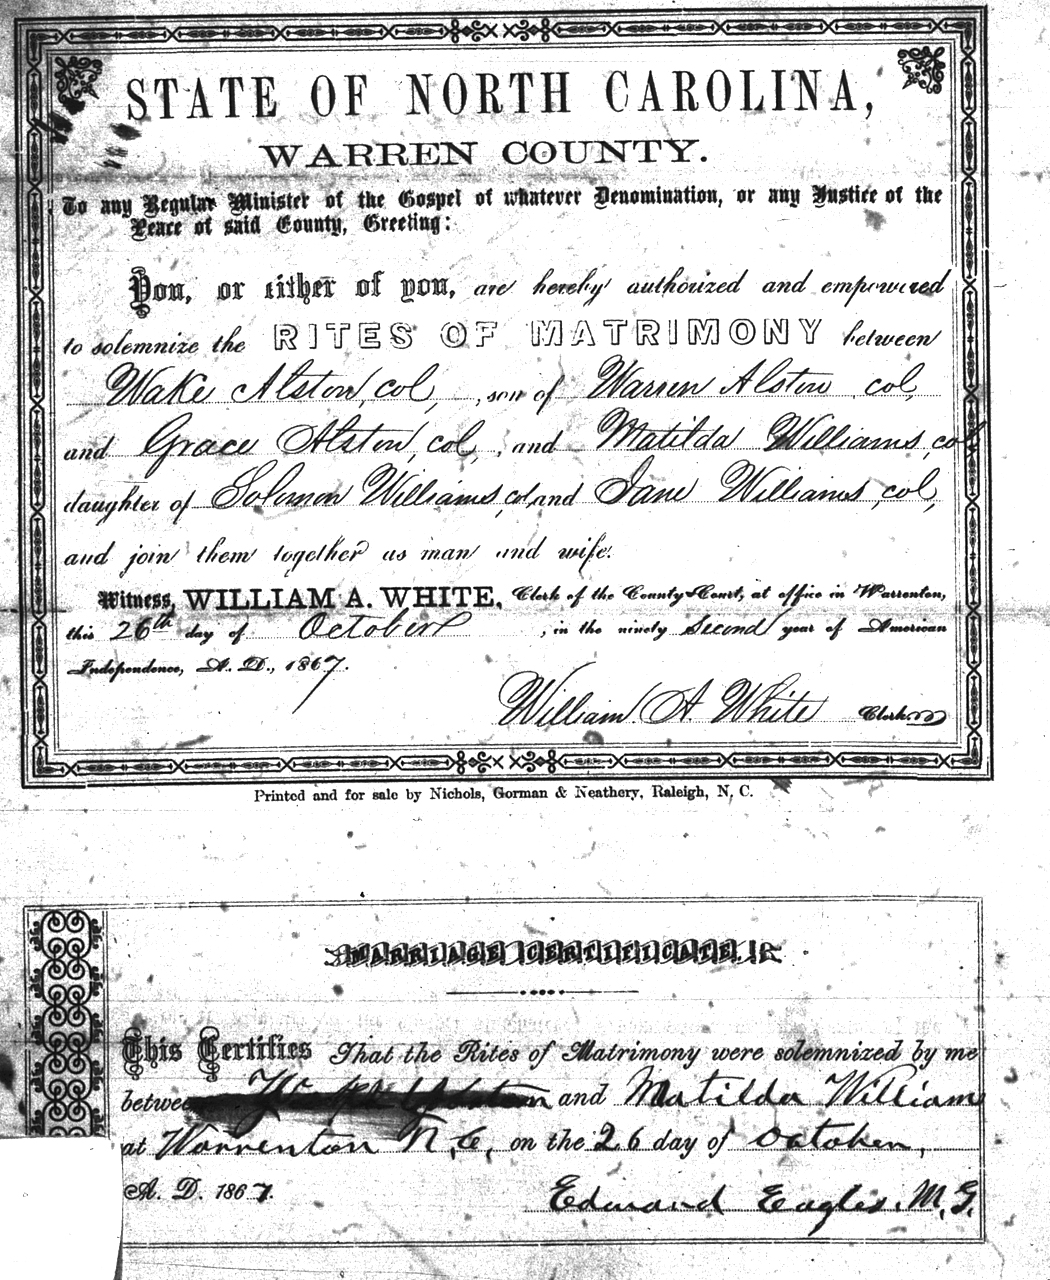 STATE OF NORTH CAROLINA,
WARREN COUNTY.
To any Regular Minister of the Gospel of whatever Denomination, or any Justice of the
Peace of said County, Greeting:
You, or either of you, are hereby authorized and empowered
to solemnize the RITES OF MATRIMONY between
Wake Alston, col, , son of Warren Alston col,
and Grace Alston, col, , and Matilda Williams, col
daughter of Solomon Williams, col, and Jane Williams, col,
and join them together as man and wife.
Witness, WILLIAM A. WHITE, Clerk of the County Court, at office in Warrenton,
this 26th day of October , in the ninety second year of American
Independence, A. D., 1867.
William A. White Clerk.
Printed and for sale by Nichols, Gorman & Neathery, Raleigh, N. C.
MARRIAGE CERTIFICATE.
This Certifies That the Rites of Matrimony were solemnized by me
between and Matilda William
at Warrenton N, C, on the 26 day of octoken,
A. D. 1867.
Edmand Eagles. M. G.